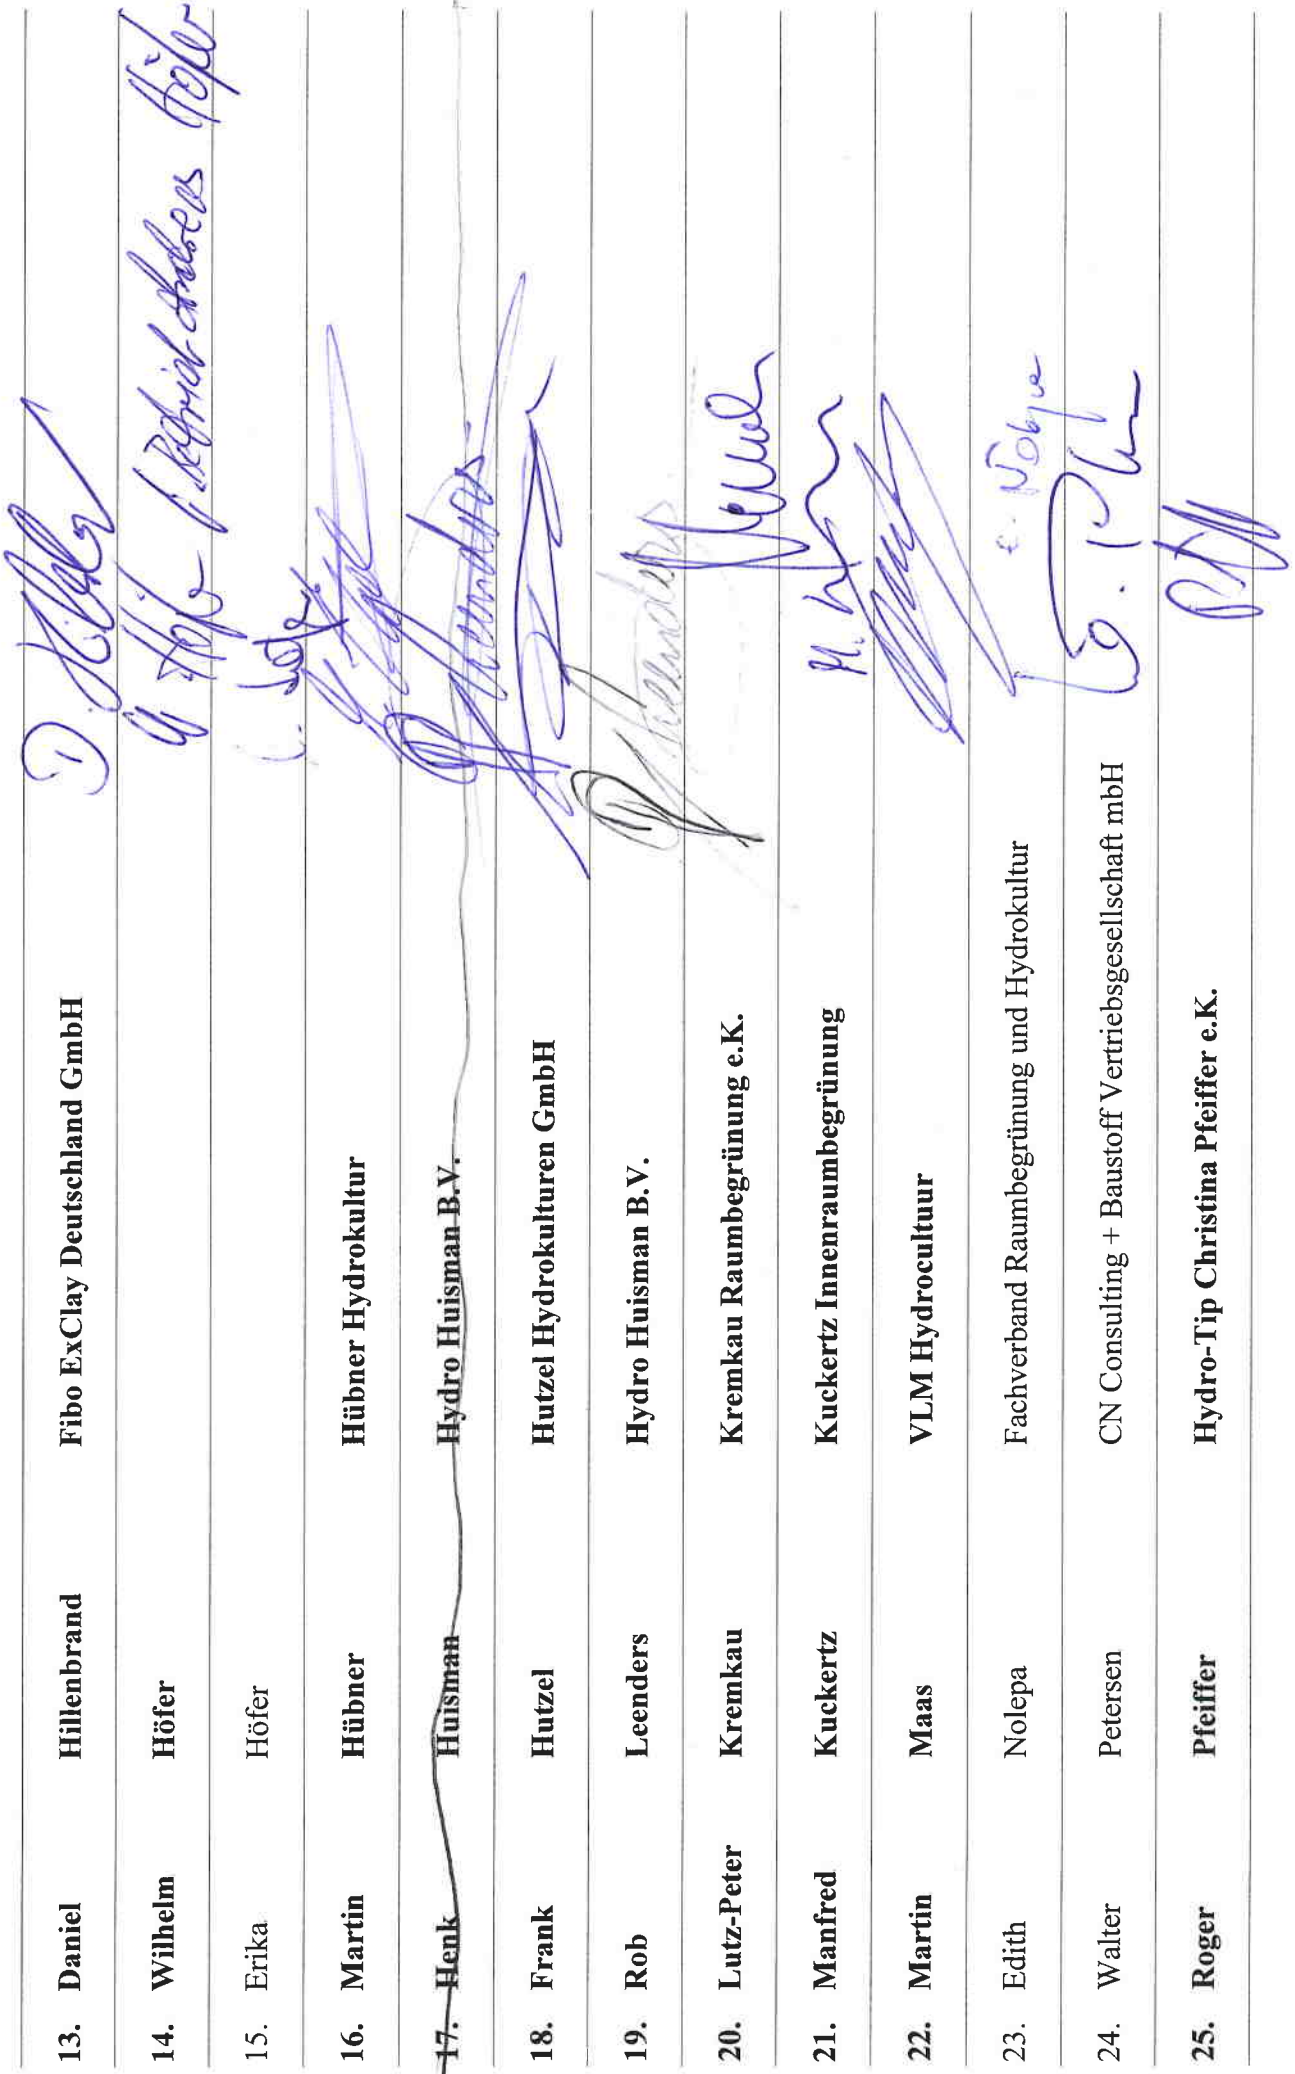 13. Daniel Hillenbrand Fibo ExClay Deutschland GmbH D.
14. Wilhelm Höfer Höfer Höfer
15. Erika Höfer
16. Martin Hübner Hübner Hydrokultur
17. Henk Huisman Hydro Huisman B.V. Leenders
18. Frank Hutzel Hutzel Hydrokulturen GmbH
19. Rob Leenders Hydro Huisman B.V. Leenders
20. Lutz-Peter Kremkau Kremkau Raumbegrünung e.K.
21. Manfred Kuckertz Kuckertz Innenraumbegrünung M.
22. Martin Maas VLM Hydrocultuur
23. Edith Nolepa Fachverband Raumbegrünung und Hydrokultur E. Nolepa
24. Walter Petersen CN Consulting + Baustoff Vertriebsgesellschaft mbH
25. Roger Pfeiffer Hydro-Tip Christina Pfeiffer e.K.